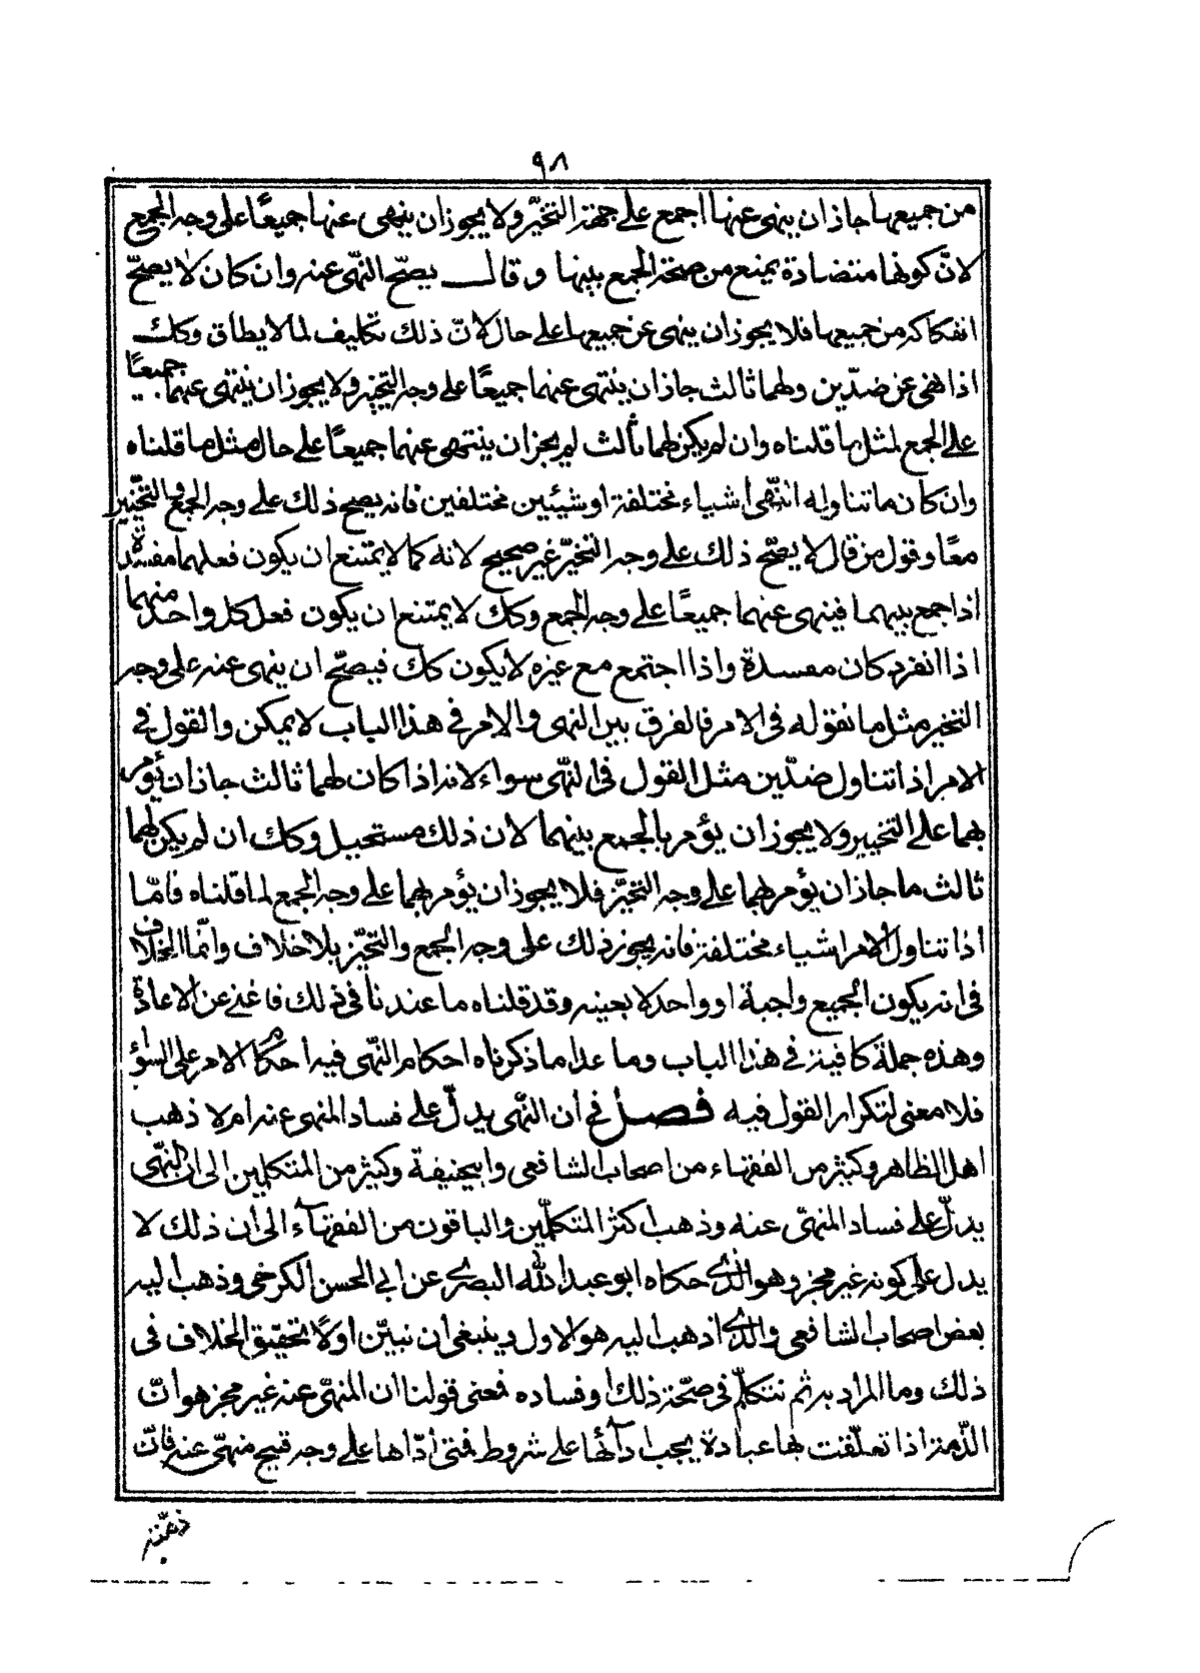 ٩٨
من جميعها جاز ان ينهى عنها اجمع على جهة التخيّر ولا يجوز ان ينهى عنها جميعًا على وجه الجمع
لانّ كونها متضادة يمنع من صحة الجمع بينها وقال يصحّ النهى عنه وان كان لا يصحّ
انفكاكه من جميعها فلا يجوز ان ينهى عن جميعها على حال لانّ ذلك تكليف لما لا يطاق وكك
اذا نهى عن ضدّين ولهما ثالث جاز ان ينتهى عنهما جميعًا على وجه التخير ولا يجوز ان ينتهى عنهما جميعًا
على الجمع لمثل ما قلناه وان لم يكن لهما ثالث لم يجز ان ينتهى عنهما جميعًا على حال مثل ما قلناه
وان كان ما تناوله النّهى اشياء مختلفة او شيئين مختلفين فانه يصح ذلك على وجه الجمع والتخيير
معًا وقول من قال لا يصحّ ذلك على وجه التخيّر غير صحيح لانه كما لا يمتنع ان يكون فعلهما مفسدة
اذا جمع بينهما فينهى عنهما جميعًا على وجه الجمع وكك لا يمتنع ان يكون فعل كل واحد منهما
اذا انفرد كان مفسدة واذا اجتمع مع غيره لا يكون كك فيصحّ ان ينهى عنه على وجه
التخير مثل ما نقوله فى الامر فالفرق بين النهى والامر فى هذا الباب لا يمكن والقول فى
الامر اذا تناول ضدّين مثل القول فى النهى سواء لانه اذا كان لهما ثالث جاز ان يؤمر
بهما على التخيير ولا يجوز ان يؤمر بالجمع بينهما لان ذلك مستحيل وكك ان لم يكن لهما
ثالث ما جاز ان يؤمر بهما على وجه التخيّر فلا يجوز ان يؤمر بهما على وجه الجمع لما قلناه فامّا
اذا تناول الامر اشياء مختلفة فانه يجوز ذلك على وجه الجمع والتخيّر بلا خلاف وانّما الخلاف
فى انه يكون الجميع واجبة او واحد لا بعينه وقد قلناه ما عندنا فى ذلك فاغنى عن الاعادة
وهذه جملة كافية فى هذا الباب وما عدا ما ذكرناه احكام النّهى فيه احكام الامر على السواء
فلا معنى لتكرار القول فيه فصل فى ان النّهى يدلّ على فساد المنهى عنه ام لا ذهب
اهل الظاهر وكثير من الفقهاء من اصحاب الشافعى وابيحنيفة وكثير من المتكلمين الى ان النهى
يدلّ على فساد المنهىّ عنه وذهب اكثر المتكلّمين والباقون من الفقهاء الى ان ذلك لا
يدل على كونه غير مجز وهو الّذى حكاه ابو عبد الله البصرى عن ابى الحسن الكرخى وذهب اليه
بعض اصحاب الشافعى والّذى اذهب اليه هو الاول وينبغى ان نبيّن اولًا تحقيق الخلاف فى
ذلك وما المراد به ثم نتكلّم فى صحّة ذلك او فساده فمعنى قولنا ان المنهىّ عنه غير مجز هو انّ
الذّمة اذا تعلّقت بها عبادة يجب اداؤها على شروط فمتى ادّاها على وجه قبيح منهىّ عنه فانّ
ذمّته